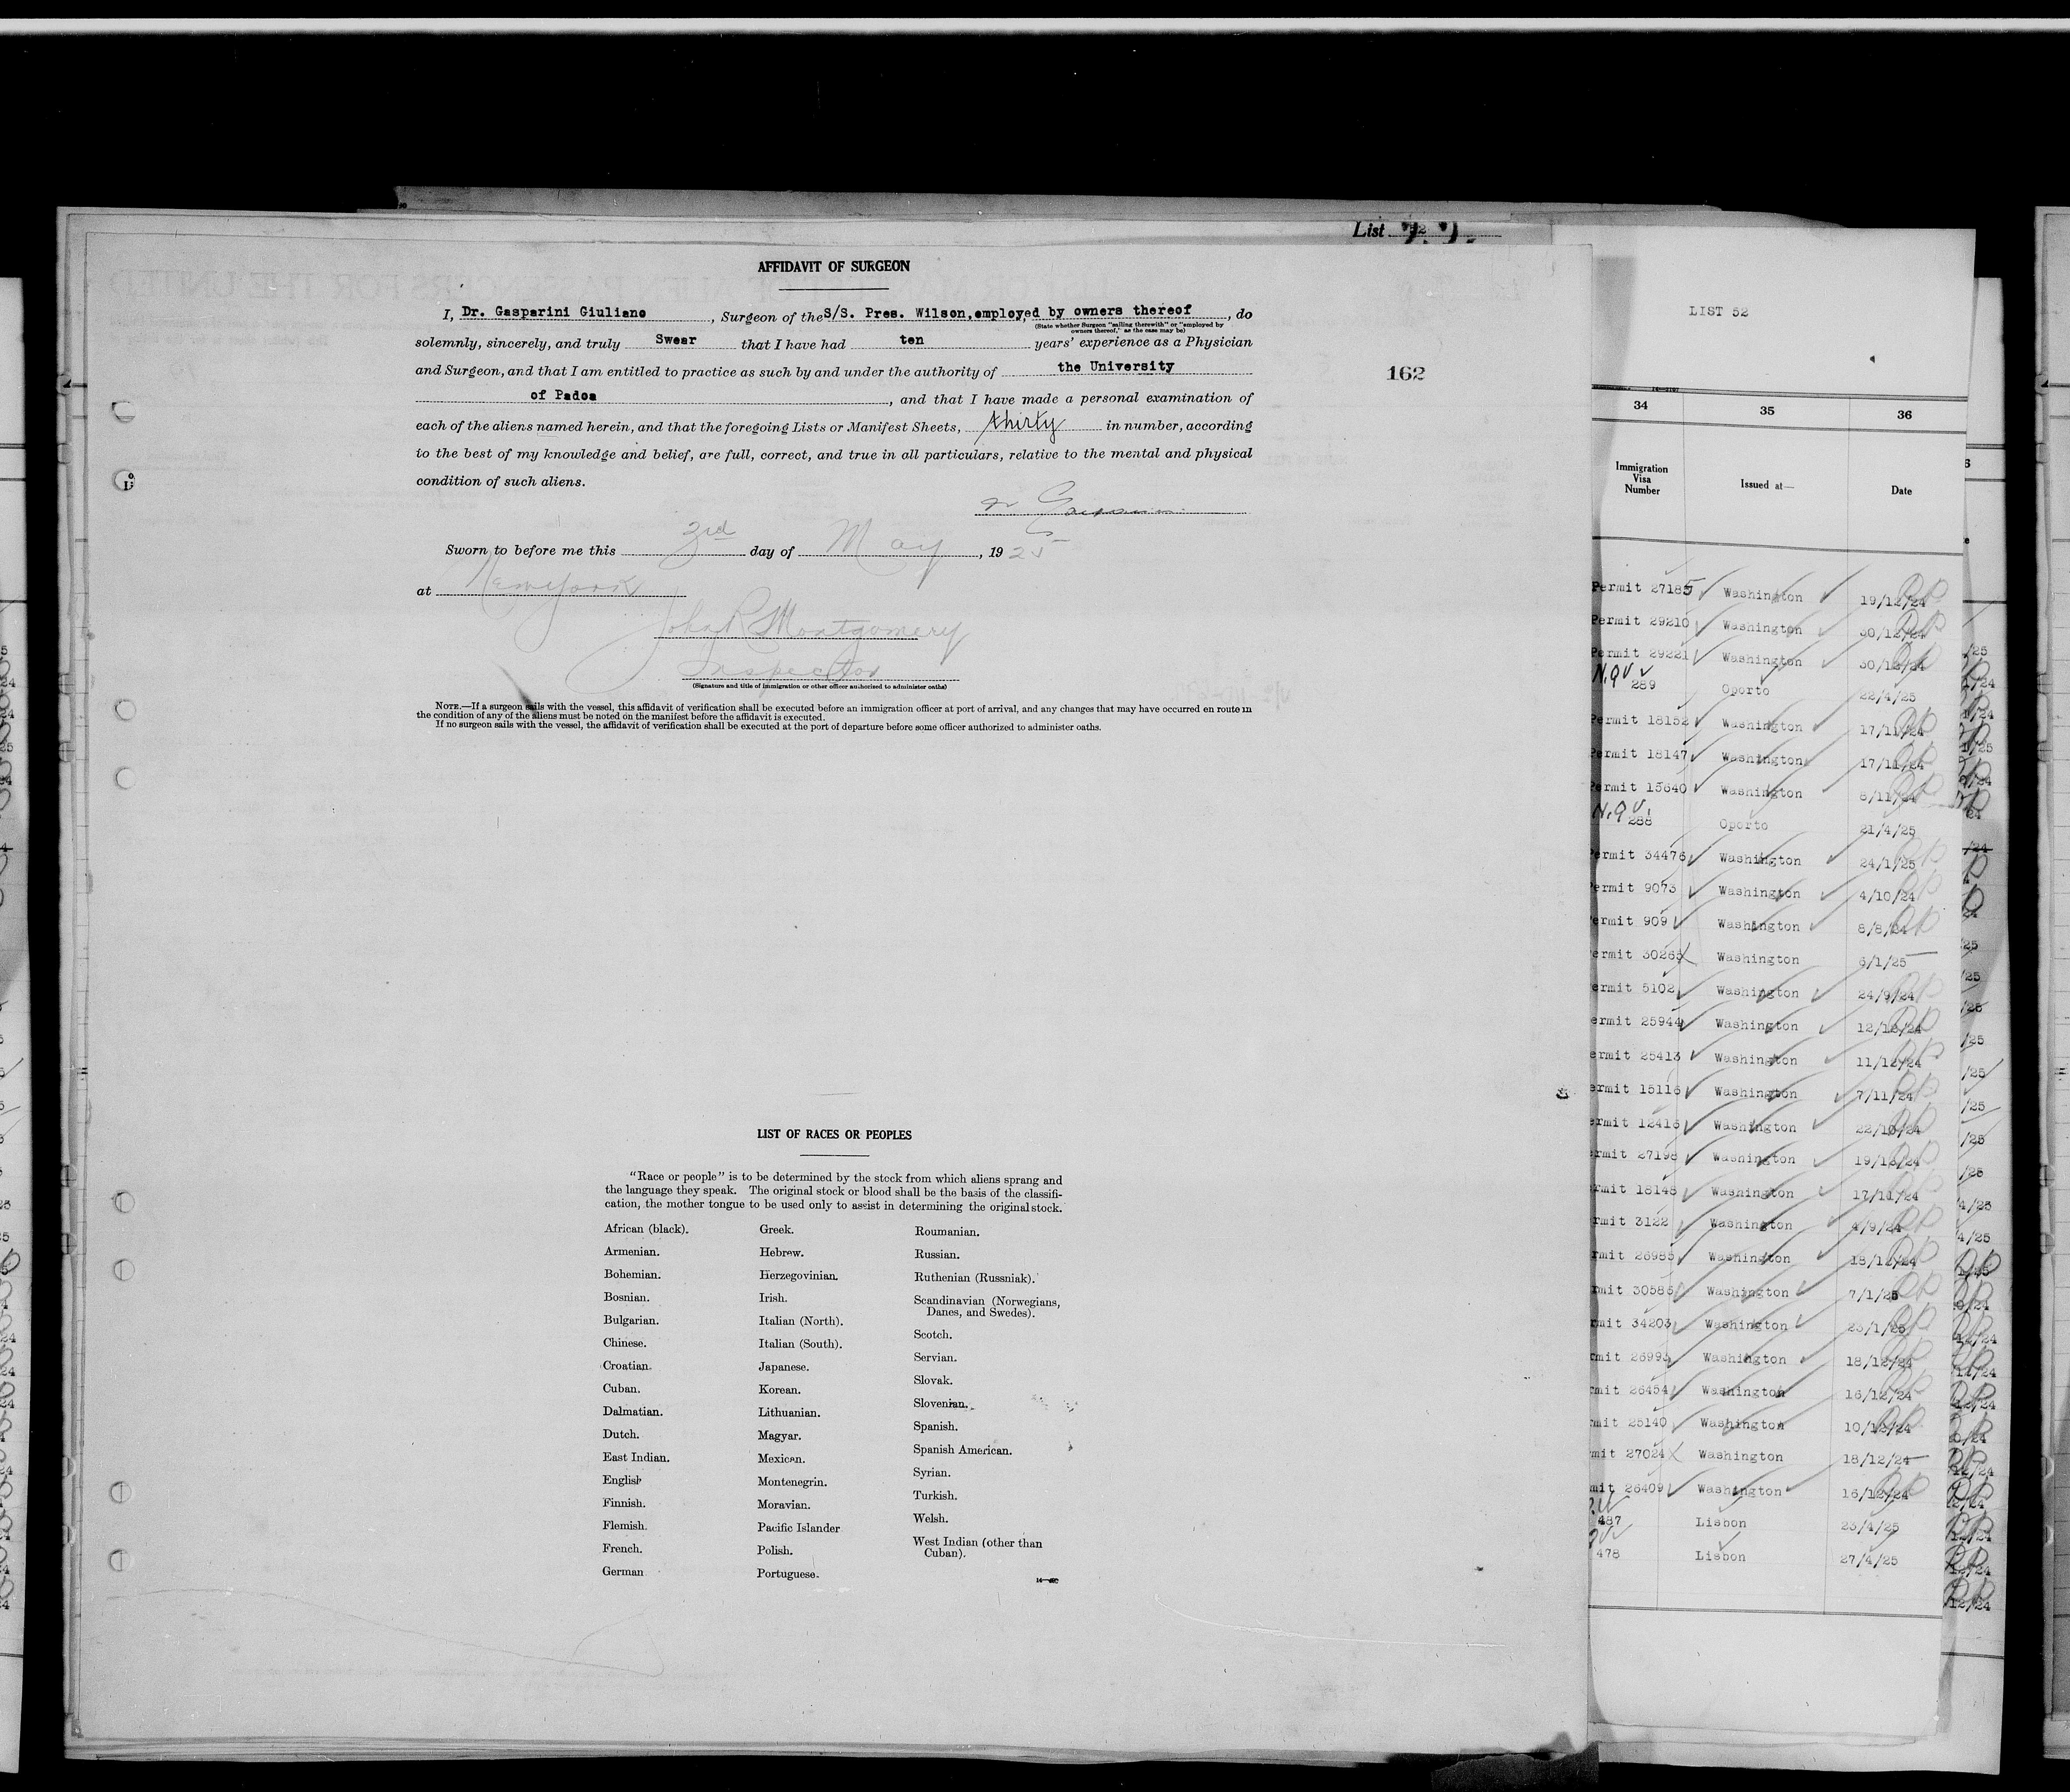 List
AFFIDAVIT OF SURGEON
I, Dr. Gasparini Giuliano, Surgeon of the S/S. Pres. Wilson, employed by owners thereof, do
(State whether Surgeon "sailing therewith" or "employed by
owners thereof," as the case may be)
solemnly, sincerely, and truly Swear that I have had ten years' experience as a Physician
and Surgeon, and that I am entitled to practice as such by and under the authority of the University
of Padoa, and that I have made a personal examination of
each of the aliens named herein, and that the foregoing Lists or Manifest Sheets, thirty in number, according
to the best of my knowledge and belief, are full, correct, and true in all particulars, relative to the mental and physical
condition of such aliens.
Sworn to before me this 3rd day of May, 1925
at New York
John R Montgomery
Inspector
(Signature and title of immigration or other officer authorized to administer oaths)
NOTE.—If a surgeon sails with the vessel, this affidavit of verification shall be executed before an immigration officer at port of arrival, and any changes that may have occurred en route in
the condition of any of the aliens must be noted on the manifest before the affidavit is executed.
If no surgeon sails with the vessel, the affidavit of verification shall be executed at the port of departure before some officer authorized to administer oaths.
162
LIST OF RACES OR PEOPLES
"Race or people" is to be determined by the stock from which aliens sprang and
the language they speak. The original stock or blood shall be the basis of the classifi-
cation, the mother tongue to be used only to assist in determining the original stock.
African (black).
Armenian.
Bohemian.
Bosnian.
Bulgarian.
Chinese.
Croatian.
Cuban.
Dalmatian.
Dutch.
East Indian.
English
Finnish.
Flemish.
French.
German
Greek.
Hebrew.
Herzegovinian.
Irish.
Italian (North).
Italian (South).
Japanese.
Korean.
Lithuanian.
Magyar.
Mexican.
Montenegrin.
Moravian.
Pacific Islander
Polish.
Portuguese.
Roumanian.
Russian.
Ruthenian (Russniak).
Scandinavian (Norwegians,
Danes, and Swedes).
Scotch.
Servian.
Slovak.
Slovenian.
Spanish.
Spanish American.
Syrian.
Turkish.
Welsh.
West Indian (other than
Cuban).
LIST 52
34 35 36
Immigration
Visa
Number
Issued at—
Date
Permit 27185 Washington 19/12/24
Permit 29210 Washington 30/12/24
Permit 29221 Washington 30/12/24
N.Q.V. 289 Oporto 22/4/25
Permit 18152 Washington 17/11/24
ermit 18147 Washington 17/11/24
ermit 15640 Washington 8/11/24
N.Q.V. 288 Oporto 21/4/25
ermit 34476 Washington 24/1/25
ermit 9073 Washington 4/10/24
ermit 909 Washington 8/8/24
ermit 30265 Washington 6/1/25
ermit 5102 Washington 24/9/24
ermit 25944 Washington 12/12/24
ermit 25413 Washington 11/12/24
ermit 15116 Washington 7/11/24
ermit 12416 Washington 22/10/24
rmit 27198 Washington 19/12/24
rmit 18148 Washington 17/11/24
rmit 3122 Washington 4/9/24
rmit 26985 Washington 18/12/24
mit 30586 Washington 7/1/25
mit 34203 Washington 23/1/25
mit 26993 Washington 18/12/24
mit 26454 Washington 16/12/24
mit 25140 Washington 10/12/24
mit 27024 Washington 18/12/24
mit 26409 Washington 16/12/24
487 Lisbon 23/4/25
478 Lisbon 27/4/25